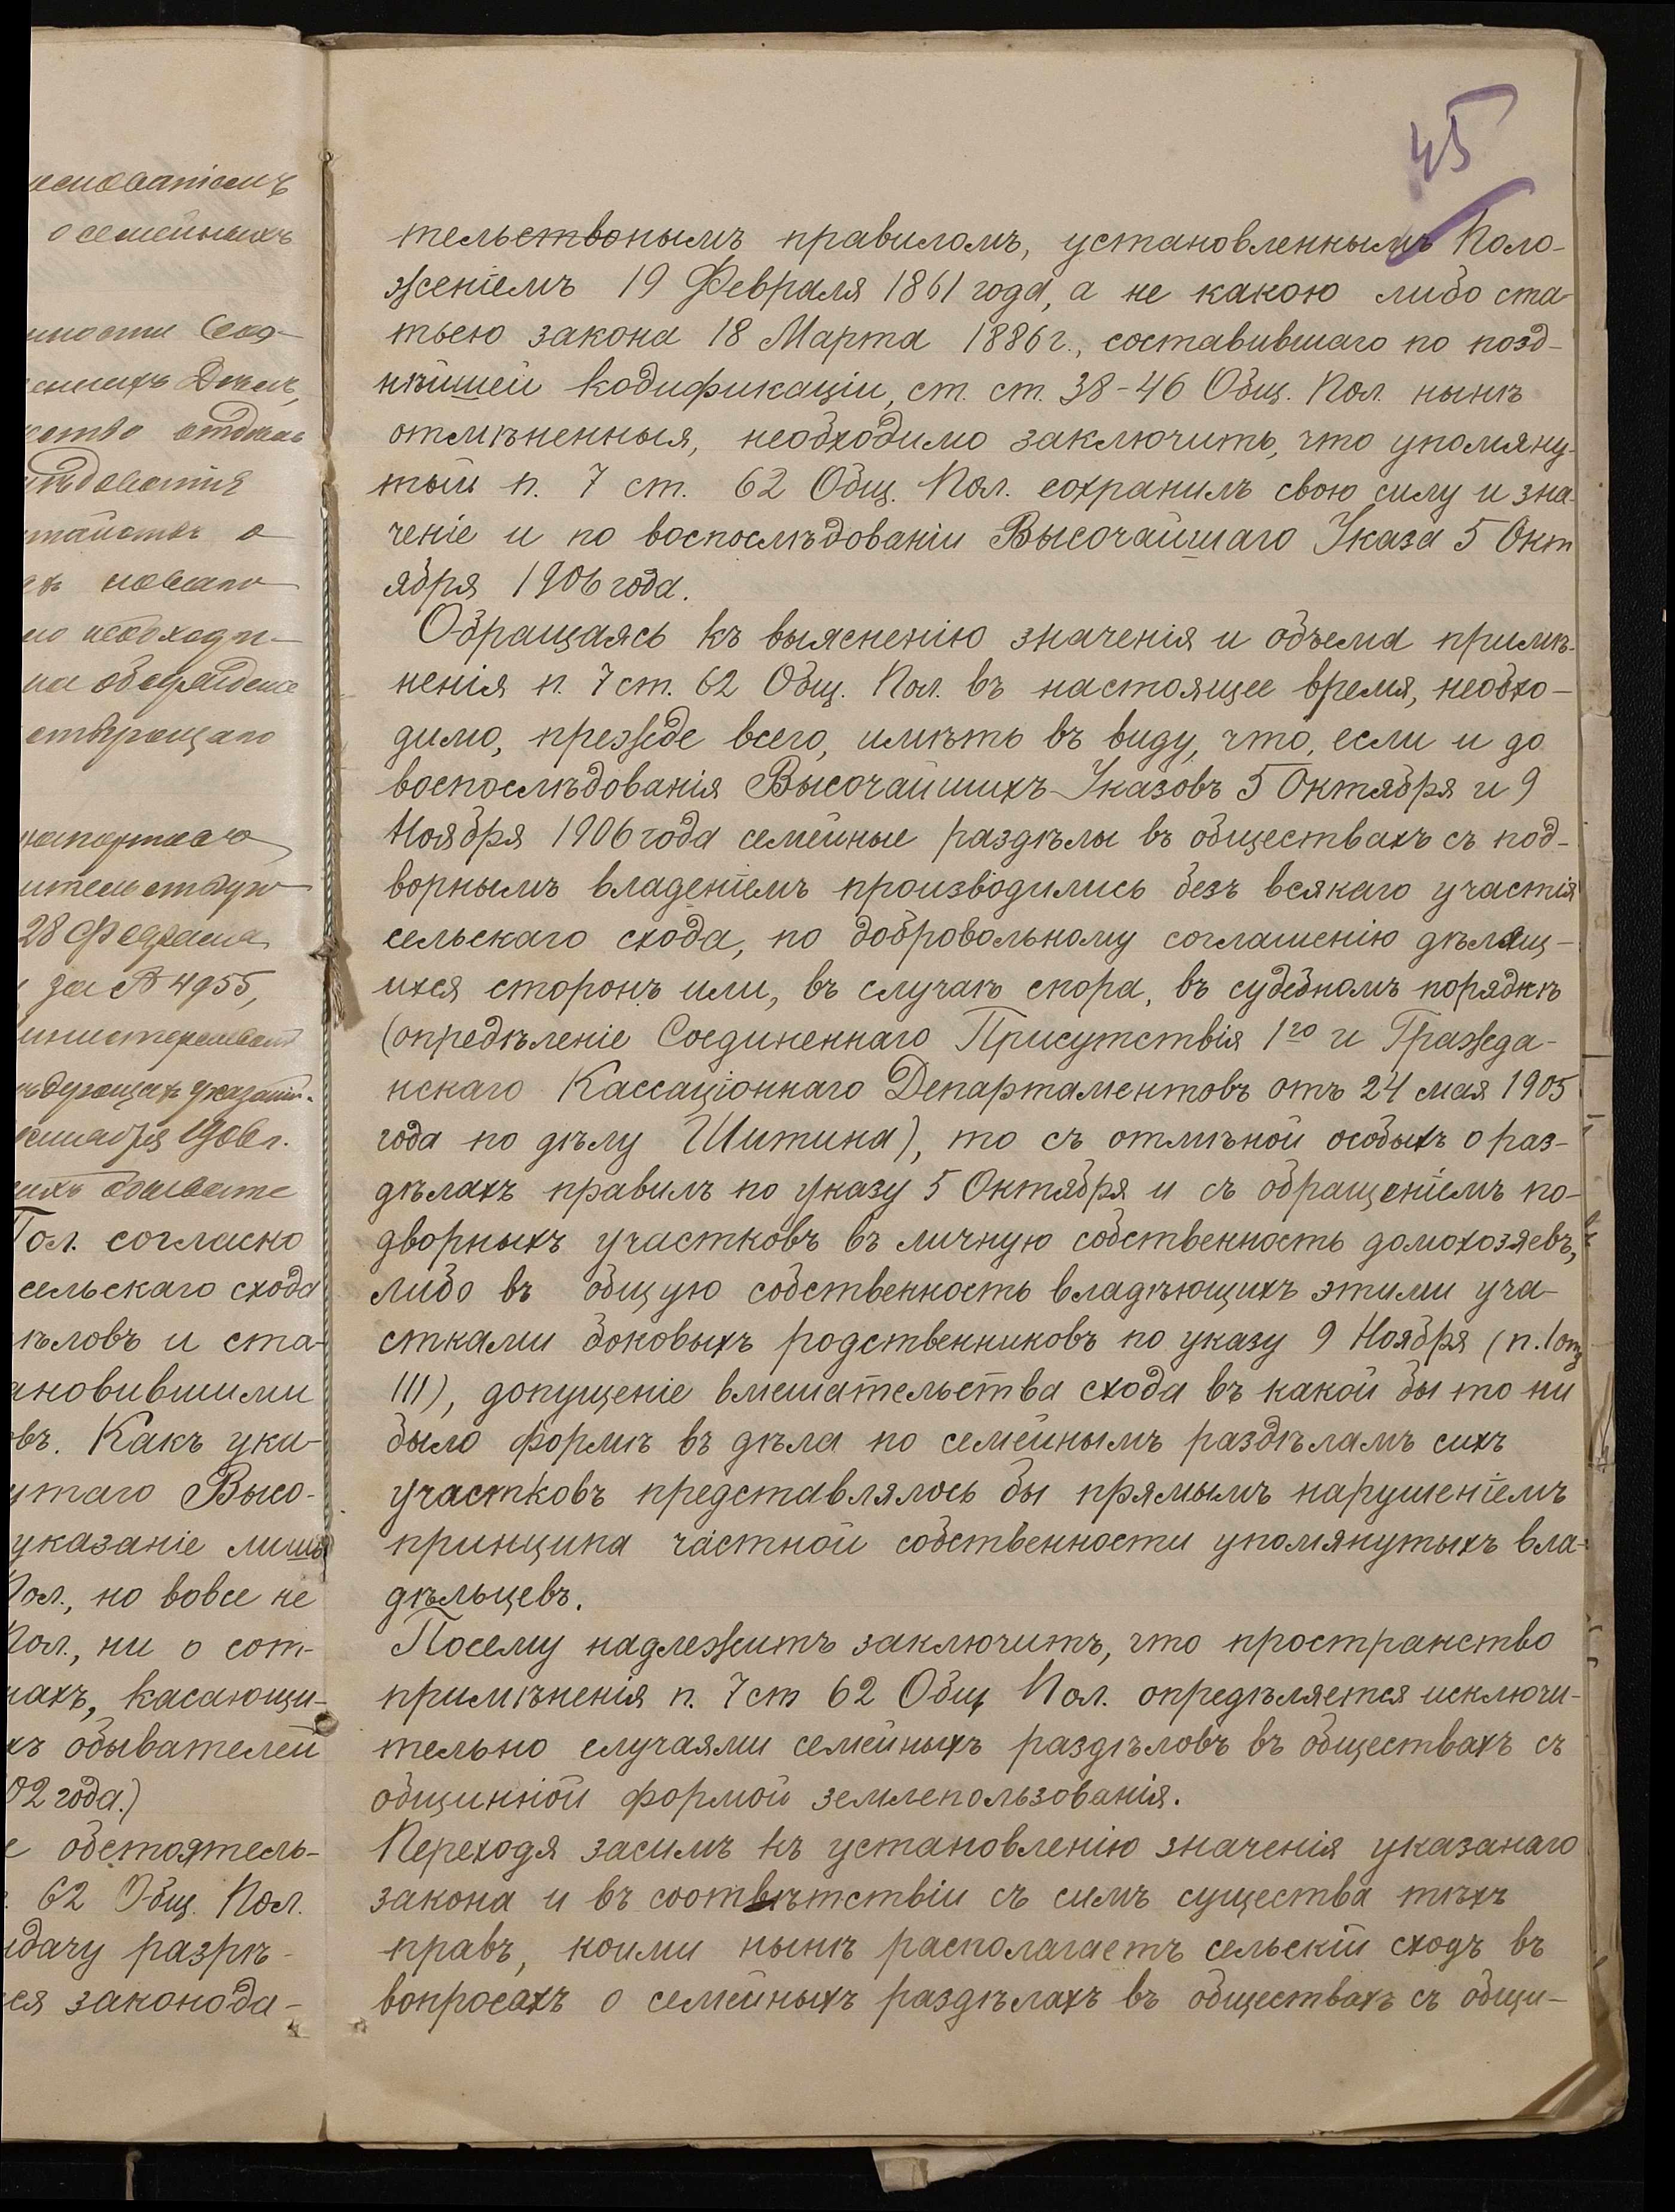 45
тельствонымъ правиломъ, установленнымъ Поло-
женіемъ 19 Февраля 1861 года, а не какою либо ста-
тьею закона 18 Марта 1886 г., составившаго по позд-
нѣйшей кодификаціи, ст. ст. 38-46 Общ. Пол. нынѣ
отмѣненныя, необходимо заключить, что упомяну-
тый п. 7 ст. 62 Общ. Пол. сохранилъ свою силу и зна-
ченіе и по воспослѣдованіи Высочайшаго Указа 5 Окт
ября 1906 года.
Обращаясь къ выясненію значенія и объема примѣ-
ненія п. 7 ст. 62 Общ. Пол. въ настоящее время, необхо-
димо, прежде всего, имѣть въ виду, что, если и до
воспослѣдованія Высочайшихъ Указовъ 5 Октября и 9
Ноября 1906 года семейные раздѣлы въ обществахъ съ под-
ворнымъ владеніемъ производились безъ всякаго участія
сельскаго схода, по добровольному соглашенію дѣлящ-
ихся сторонъ или, въ случаѣ спора, въ судебномъ порядкѣ
(опредѣленіе Соединеннаго Присутствія 1го и Гражда-
нскаго Кассаціоннаго Департаментовъ отъ 24 мая 1905
года по дѣлу Шитина), то съ отмѣной особыхъ о раз-
дѣлахъ правилъ по указу 5 Октября и съ обращеніемъ по-
дворныхъ участковъ въ личную собственность домохозяевъ,
либо въ общую собственность владѣющихъ этими уча-
стками боковыхъ родственниковъ по указу 9 Ноября (п. 1 отд
III), допущеніе вмешательства схода въ какой бы то ни
было формѣ въ дѣла по семейнымъ раздѣламъ сихъ
участковъ представлялось бы прямымъ нарушеніемъ
принципа частной собственности упомянутыхъ вла-
дѣльцевъ.
Посему надлежитъ заключить, что пространство
примѣненія п. 7 ст 62 Общ Пол. опредѣляется исключи-
тельно случаями семейныхъ раздѣловъ въ обществахъ съ
общинной формой землепользованія.
Переходя засимъ къ установленію значенія указанаго
закона и въ соотвѣтствіи съ симъ существа тѣхъ
правъ, коими нынѣ располагаетъ сельскій сходъ въ
вопросахъ о семейныхъ раздѣлахъ въ обществахъ съ общи-
о семейныхъ
28 Февраля
за № 4955,
Пол. согласно
сельскаго схода
ѣловъ и ста-
ановившими
овъ. Какъ ука-
утаго Высо-
указаніе лишь
Пол., но вовсе не
Пол., ни о сот-
чахъ, касающи-
хъ обывателей
02 года.)
е обстоятель-
62 Общ. Пол.
дачу разрѣ-
ся законода-